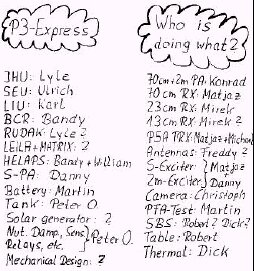 P3-Express
IHU: Lyle
SEU: Ulrich
LIU: Karl
BCR: Bandy
RUDAK: Lyle ?
LEILA+MATRIX: ?
HELAPS: Bandy + William
S-PA: Danny
Battery: Martin
Tank: Peter O.
Solar generator: ?
Nut. Damp, Sens,
Relays, etc. } Peter O.
Mechanical Design: ?
Who is
doing what?
70cm+2m PA: Konrad
70cm RX: Matjaz
23cm RX: Mirek
13cm RX: Mirek
PSA TRX: Matjaz+Michael
Antennas: Freddy ?
S-Exciter } Matjaz
2m-Exciter } Danny
Camera: Christoph
PFA-Test: Martin
SBS: Robert? Dick?
Table: Robert
Thermal: Dick